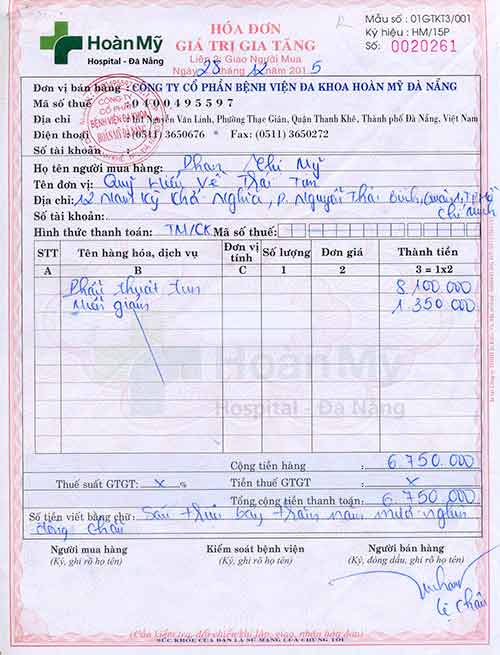 HoànMỹ
Hospital - Đà Nẵng
HÓA ĐƠN
GIÁ TRỊ GIA TĂNG
Liên 2: Giao Người Mua
Ngày 28 tháng 12 năm 2015
Mẫu số : 01GTKT3/001
Ký hiệu : HM/15P
Số: 0020261
Đơn vị bán hàng : CÔNG TY CỔ PHẦN BỆNH VIỆN ĐA KHOA HOÀN MỸ ĐÀ NẴNG
Mã số thuế : 0400495597
Địa chỉ : Nguyễn Văn Linh, Phường Thạc Gián, Quận Thanh Khê, Thành phố Đà Nẵng, Việt Nam
Điện thoại : (0511) 3650676 * Fax: (0511) 3650272
Số tài khoản:
CÔNG TY
CỔ PHẦN
BỆNH VIỆN ĐA KHOA
HOÀN MỸ ĐÀ NẴNG
Họ tên người mua hàng: Phan Chi Mỹ
Tên đơn vị: Quỹ Hiểu Về Trái Tim
Địa chỉ: 12 Nam Kỳ Khởi Nghĩa, P. Nguyễn Thái Bình, Quận 1, TP Hồ
Chí Minh
Số tài khoản:
Hình thức thanh toán: TM/CK Mã số thuế:
STT Tên hàng hóa, dịch vụ Đơn vị tính Số lượng Đơn giá Thành tiền
A B C 1 2 3 = 1x2
Phẫu thuật tim 8.100.000
Miễn giảm 1.350.000
HoànMỹ
Hospital - Đà Nẵng
Cộng tiền hàng : 6.750.000
Thuế suất GTGT: x % Tiền thuế GTGT : x
Tổng cộng tiền thanh toán: 6.750.000
Số tiền viết bằng chữ: Sáu triệu bảy trăm năm mươi nghìn
đồng chẵn
Người mua hàng Kiểm soát bệnh viện Người bán hàng
(Ký, ghi rõ họ tên) (Ký, ghi rõ họ tên) (Ký, đóng dấu, ghi rõ họ tên)
Lệ Châu
(Cần kiểm tra, đối chiếu khi lập, giao, nhận hóa đơn)
SỨC KHỎE CỦA BẠN LÀ SỨ MẠNG CỦA CHÚNG TÔI